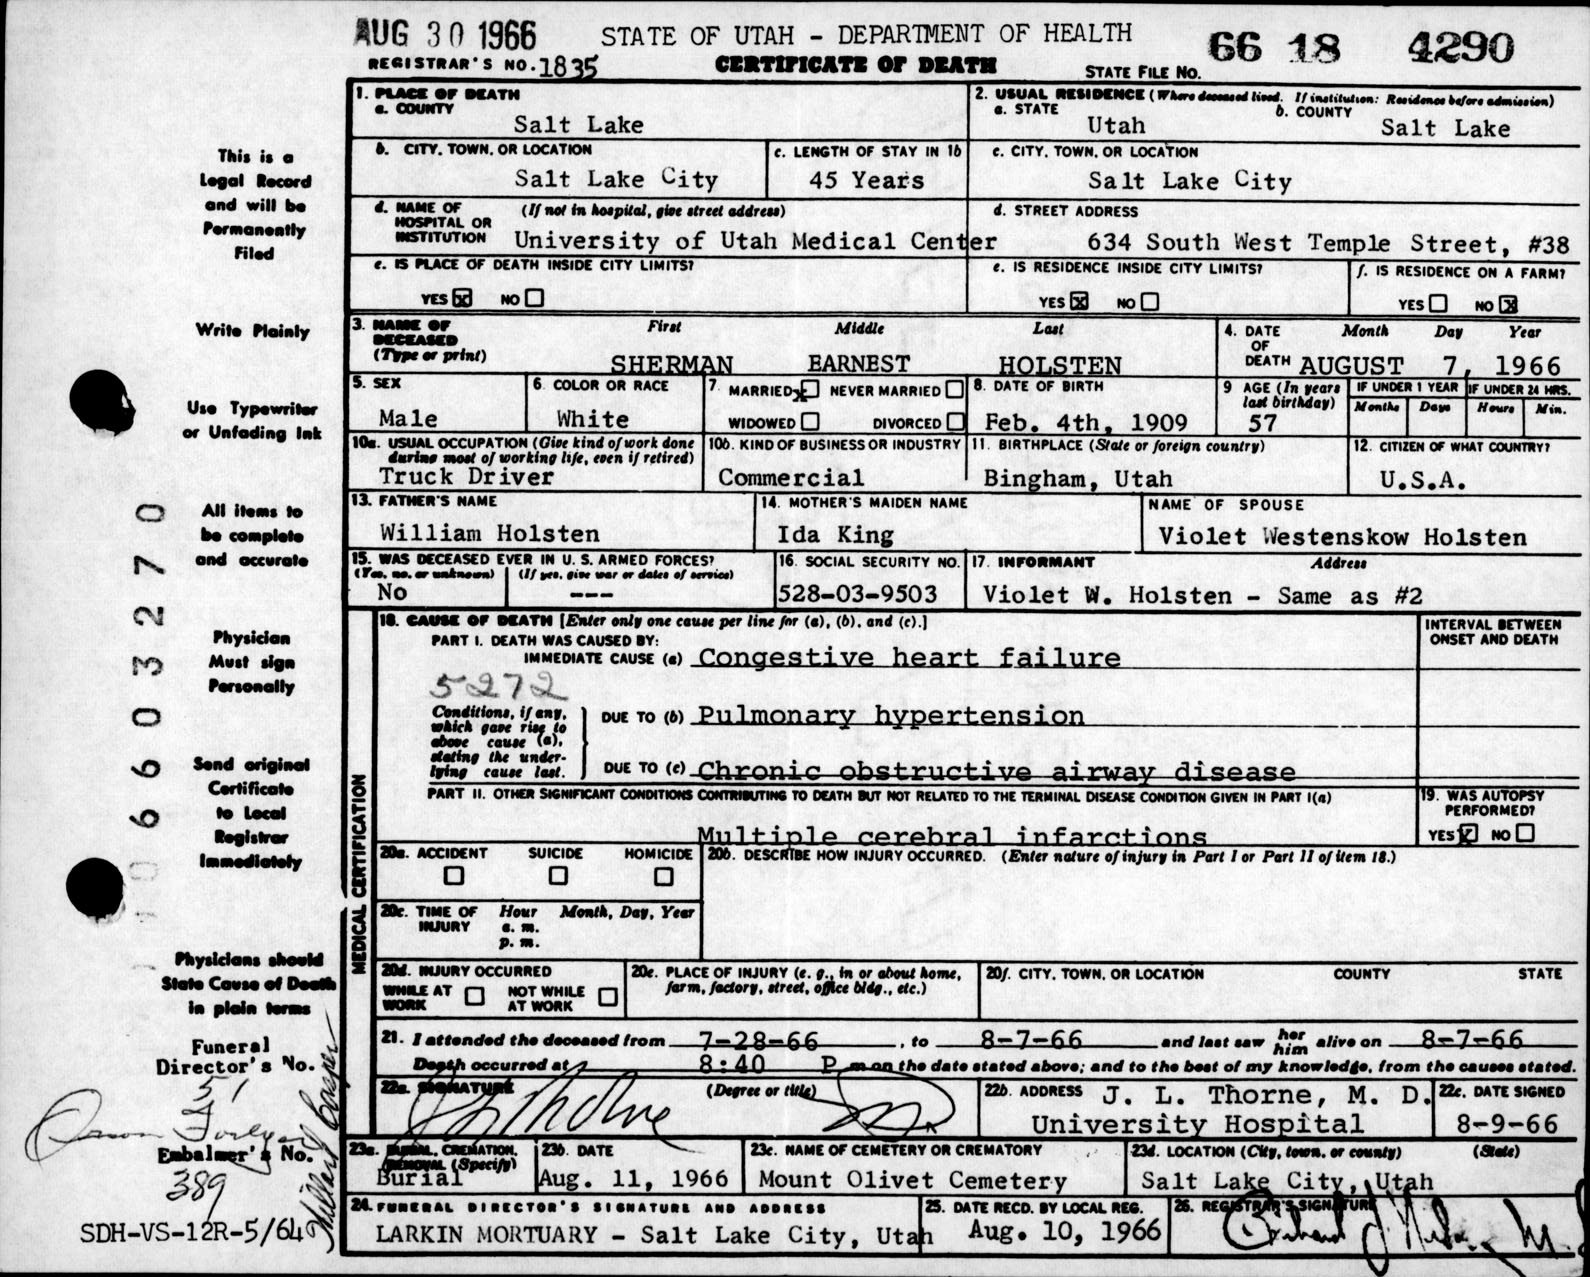 AUG 30 1966
STATE OF UTAH - DEPARTMENT OF HEALTH
66 18 4290
REGISTRAR'S NO. 1835
CERTIFICATE OF DEATH
STATE FILE NO.
1. PLACE OF DEATH
a. COUNTY
Salt Lake
2. USUAL RESIDENCE (Where deceased lived. If institution: Residence before admission)
a. STATE
Utah
b. COUNTY
Salt Lake
b. CITY, TOWN, OR LOCATION
Salt Lake City
c. LENGTH OF STAY IN 1b
45 Years
c. CITY, TOWN, OR LOCATION
Salt Lake City
d. NAME OF HOSPITAL OR INSTITUTION
(If not in hospital, give street address)
University of Utah Medical Center
d. STREET ADDRESS
634 South West Temple Street, #38
e. IS PLACE OF DEATH INSIDE CITY LIMITS?
YES x NO
e. IS RESIDENCE INSIDE CITY LIMITS?
YES x NO
f. IS RESIDENCE ON A FARM?
YES NO x
3. NAME OF DECEASED (Type or print)
First Middle Last
SHERMAN EARNEST HOLSTEN
4. DATE OF DEATH
Month Day Year
AUGUST 7, 1966
5. SEX
Male
6. COLOR OR RACE
White
7. MARRIED x NEVER MARRIED
WIDOWED DIVORCED
8. DATE OF BIRTH
Feb. 4th, 1909
9 AGE (In years last birthday)
57
IF UNDER 1 YEAR
Months Days
IF UNDER 24 HRS.
Hours Min.
10a. USUAL OCCUPATION (Give kind of work done during most of working life, even if retired)
Truck Driver
10b. KIND OF BUSINESS OR INDUSTRY
Commercial
11. BIRTHPLACE (State or foreign country)
Bingham, Utah
12. CITIZEN OF WHAT COUNTRY?
U.S.A.
13. FATHER'S NAME
William Holsten
14. MOTHER'S MAIDEN NAME
Ida King
NAME OF SPOUSE
Violet Westenskow Holsten
15. WAS DECEASED EVER IN U. S. ARMED FORCES?
(Yes, no, or unknown) (If yes, give war or dates of service)
No ---
16. SOCIAL SECURITY NO.
528-03-9503
17. INFORMANT Address
Violet W. Holsten - Same as #2
MEDICAL CERTIFICATION
18. CAUSE OF DEATH [Enter only one cause per line for (a), (b), and (c).]
PART I. DEATH WAS CAUSED BY:
IMMEDIATE CAUSE (a) Congestive heart failure
5272
Conditions, if any, which gave rise to above cause (a), stating the underlying cause last.
DUE TO (b) Pulmonary hypertension
DUE TO (c) Chronic obstructive airway disease
INTERVAL BETWEEN ONSET AND DEATH
PART II. OTHER SIGNIFICANT CONDITIONS CONTRIBUTING TO DEATH BUT NOT RELATED TO THE TERMINAL DISEASE CONDITION GIVEN IN PART I(a)
Multiple cerebral infarctions
19. WAS AUTOPSY PERFORMED?
YES x NO
20a. ACCIDENT SUICIDE HOMICIDE
20b. DESCRIBE HOW INJURY OCCURRED. (Enter nature of injury in Part I or Part II of item 18.)
20c. TIME OF INJURY
Hour Month, Day, Year
a. m.
p. m.
20d. INJURY OCCURRED
WHILE AT WORK NOT WHILE AT WORK
20e. PLACE OF INJURY (e. g., in or about home, farm, factory, street, office bldg., etc.)
20f. CITY, TOWN, OR LOCATION COUNTY STATE
21. I attended the deceased from 7-28-66, to 8-7-66 and last saw her him alive on 8-7-66
Death occurred at 8:40 P m on the date stated above; and to the best of my knowledge, from the causes stated.
22a. SIGNATURE (Degree or title)
22b. ADDRESS J. L. Thorne, M. D.
University Hospital
22c. DATE SIGNED
8-9-66
23a. BURIAL, CREMATION, REMOVAL (Specify)
Burial
23b. DATE
Aug. 11, 1966
23c. NAME OF CEMETERY OR CREMATORY
Mount Olivet Cemetery
23d. LOCATION (City, town, or county) (State)
Salt Lake City, Utah
24. FUNERAL DIRECTOR'S SIGNATURE AND ADDRESS
LARKIN MORTUARY - Salt Lake City, Utah
25. DATE RECD. BY LOCAL REG.
Aug. 10, 1966
26. REGISTRAR'S SIGNATURE
This is a
Legal Record
and will be
Permanently
Filed
Write Plainly
Use Typewriter
or Unfading Ink
All items to
be complete
and accurate
Physician
Must sign
Personally
Send original
Certificate
to Local
Registrar
Immediately
Physicians should
State Cause of Death
in plain terms
Funeral
Director's No.
51
Embalmer's No.
389
SDH-VS-12R-5/64
006603270